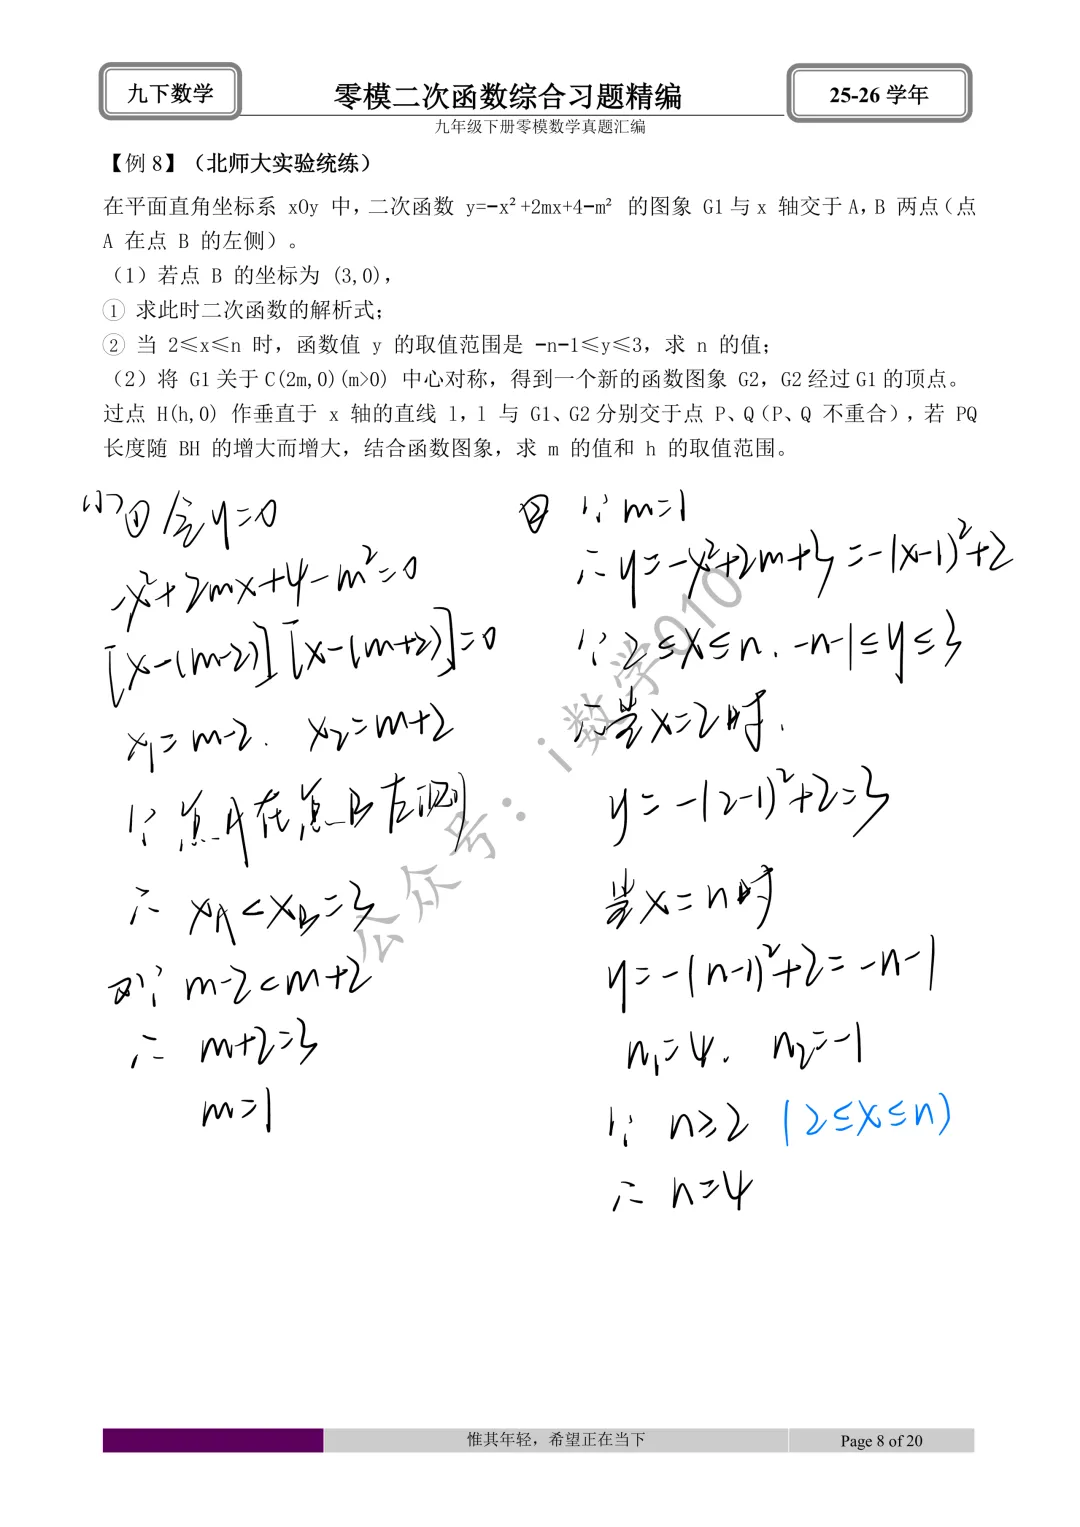 九下数学
零模二次函数综合习题精编
九年级下册零模数学真题汇编
25-26 学年
【例 8】（北师大实验统练）
在平面直角坐标系 xOy 中，二次函数 y=-x²+2mx+4-m² 的图象 G1与x 轴交于A，B 两点（点
A 在点 B 的左侧）。
（1）若点 B 的坐标为 (3,0)，
① 求此时二次函数的解析式；
② 当 2≤x≤n 时，函数值 y 的取值范围是 -n-1≤y≤3，求 n 的值；
（2）将 G1关于C(2m,0)(m>0) 中心对称，得到一个新的函数图象 G2，G2经过G1的顶点。
过点 H(h,0) 作垂直于 x 轴的直线 l，l 与 G1、G2分别交于点 P、Q（P、Q 不重合），若 PQ
长度随 BH 的增大而增大，结合函数图象，求 m 的值和 h 的取值范围。
(1) ① 令y=0
-x²+2mx+4-m²=0
[x-(m-2)][x-(m+2)]=0
x₁=m-2. x₂=m+2
∵ 点A在点B左侧
∴ xA<xB=3
又∵ m-2<m+2
∴ m+2=3
m=1
② ∵ m=1
∴ y=-x²+2m+3=-(x-1)²+2
∵ 2≤x≤n. -n-1≤y≤3
∴当x=2时.
y=-(2-1)²+2=3
当x=n时
y=-(n-1)²+2=-n-1
n₁=4. n₂=-1
∵ n≥2 (2≤x≤n)
∴ n=4
公众号：i数学010
惟其年轻，希望正在当下
Page 8 of 20